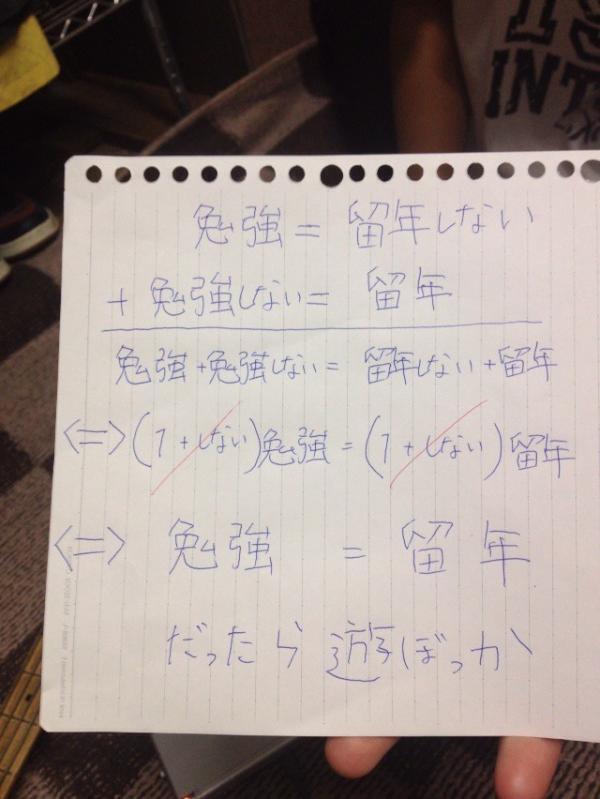 IS
INT
勉強 = 留年しない
+ 勉強しない = 留年
勉強 + 勉強しない = 留年しない + 留年
<=> (1 + しない) 勉強 = (1 + しない) 留年
<=> 勉強 = 留年
だったら遊ぼっか